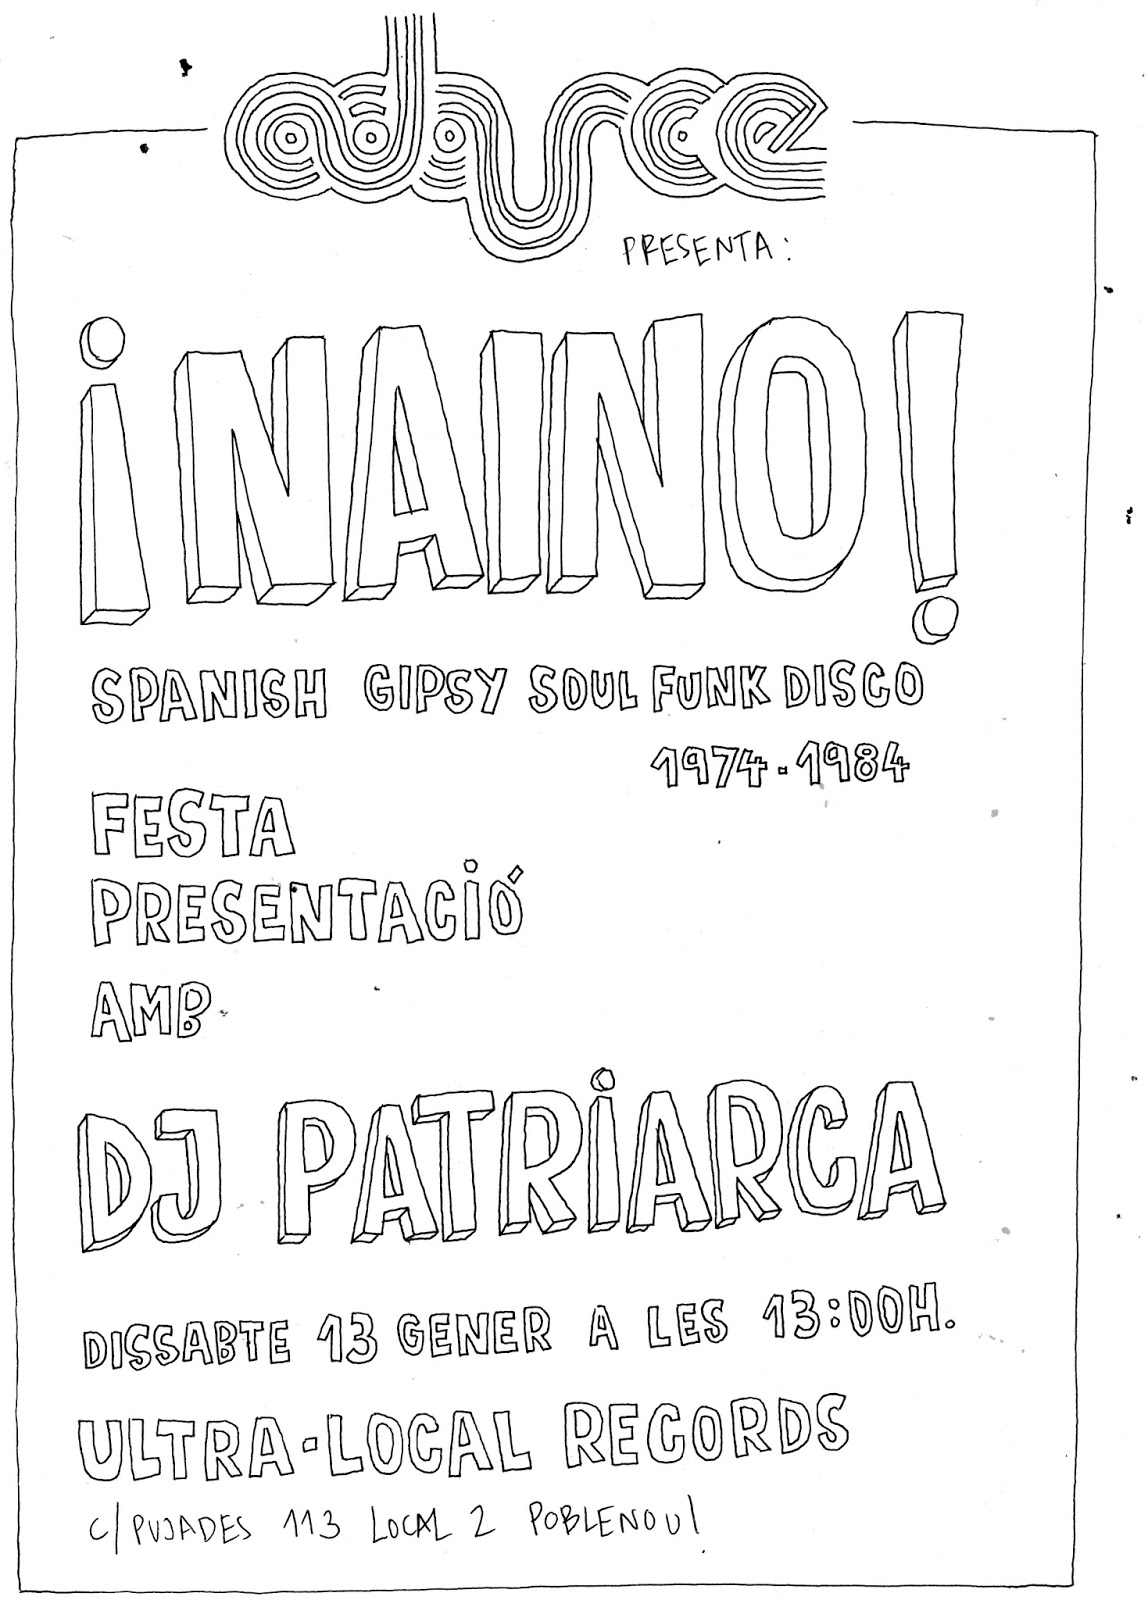 adarce
PRESENTA:
¡NAINO!
SPANISH GIPSY SOUL FUNK DISCO
1974-1984
FESTA
PRESENTACIÓ
AMB
DJ PATRIARCA
DISSABTE 13 GENER A LES 13:00H.
ULTRA-LOCAL RECORDS
C/PUJADES 113 LOCAL 2 POBLENOU!